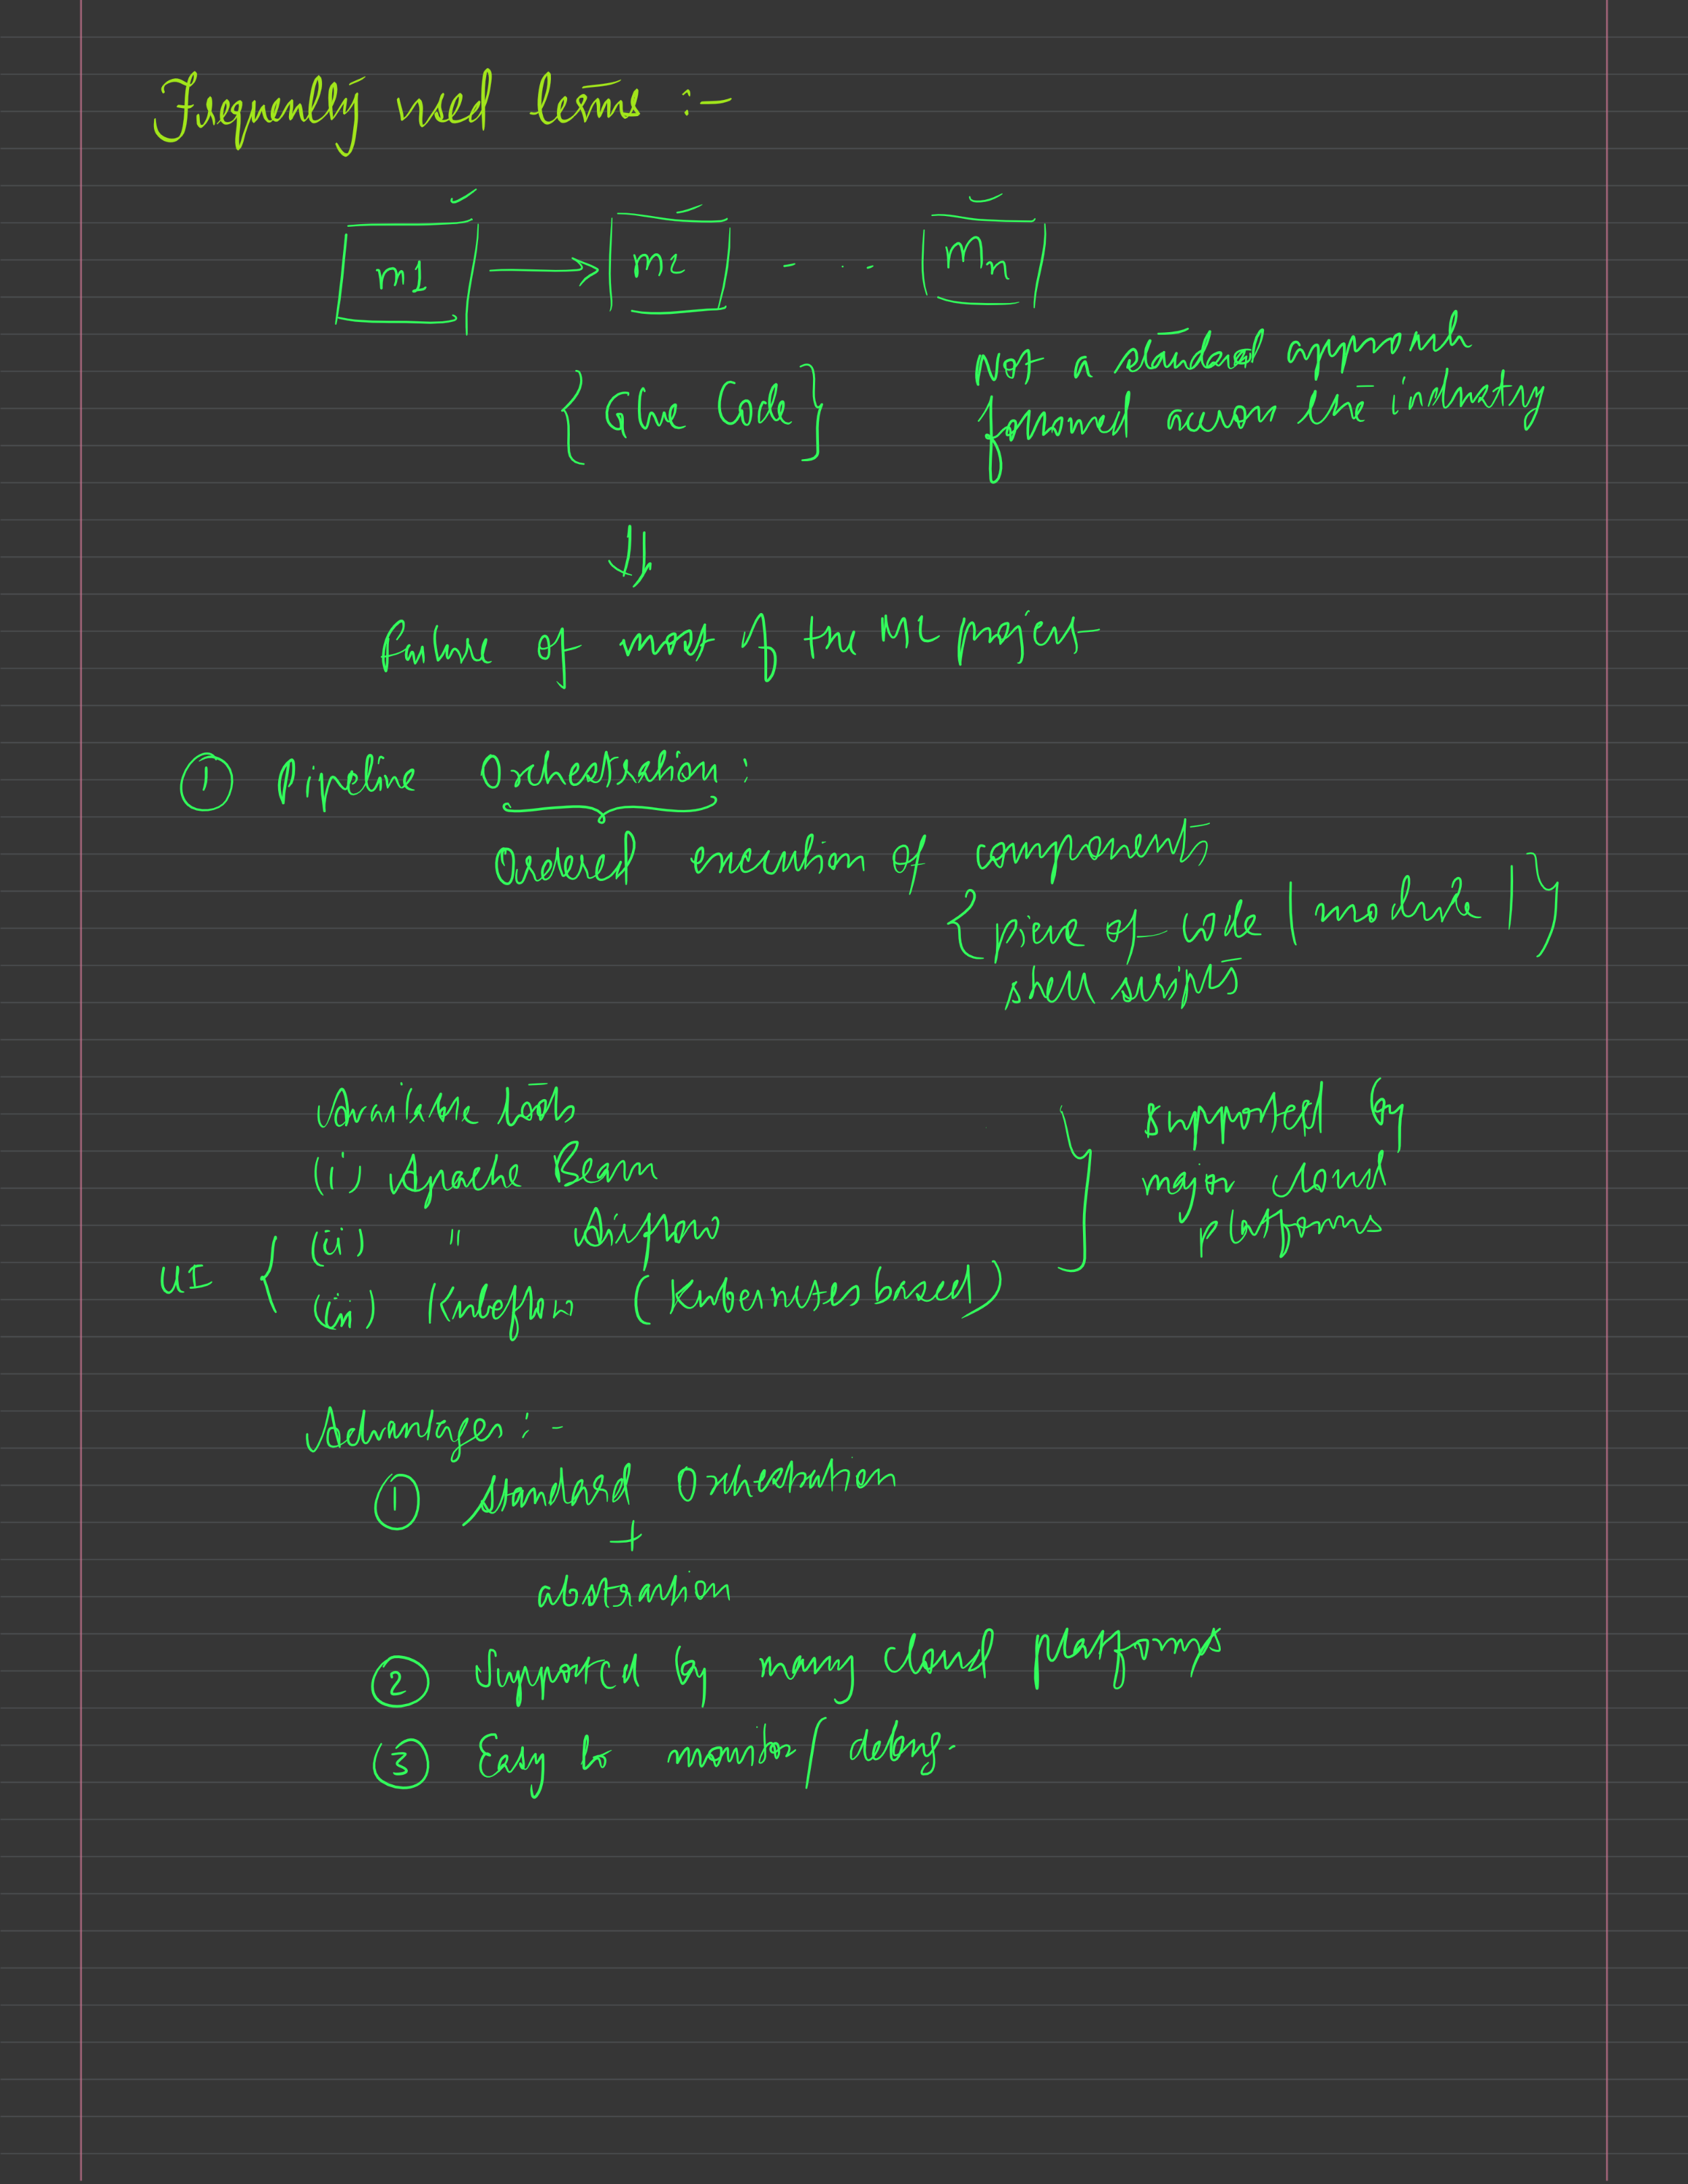 Frequently used terms :-
m1 → m2 - . . - Mn
{ Glue Code }
Not a standard approach
followed across the industry
↓↓
Failure of most of the ML project
① Pipeline Orchestration :
Ordered execution of components
{ piece of code ( module ) }
shell scripts
Available tools
(i) Apache Beam
(ii) " Airflow
(iii) Kubeflow (Kubernutes based)
UI {
} supported by
major cloud
platforms
Advantages :-
① Standard Orchestration
+
abstraction
② Supported by many cloud platforms
③ Easy to monitor / debug.